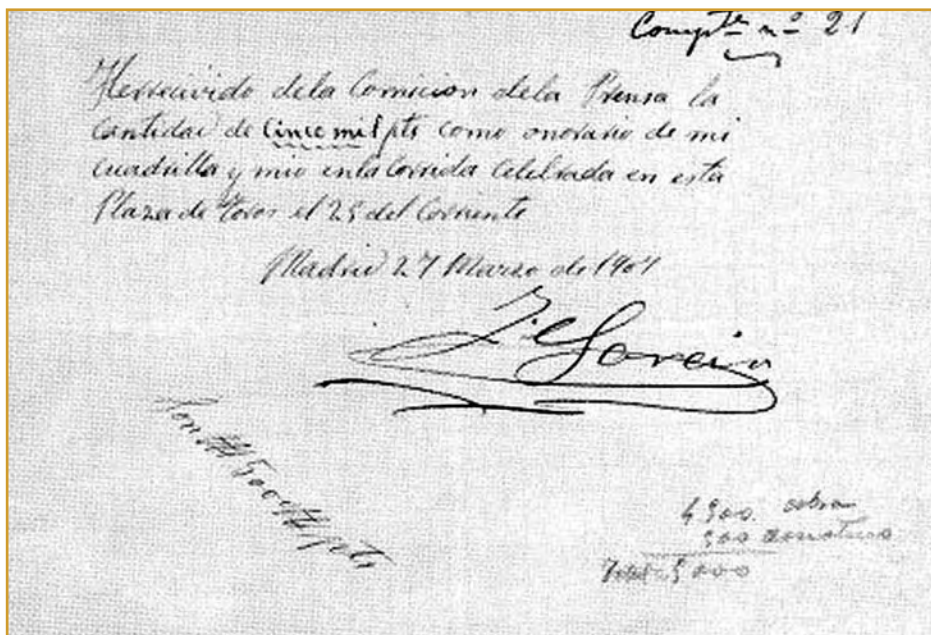 Compte nº 21
Herrecivido dela Comicion dela Prensa la
cantidad de Cinco mil pts como onorario de mi
cuadrilla y mio en la Corrida Celebrada en esta
Plaza de toros el 25 del Corriente
Madrid 27 Marzo de 1901
Garcia
Son ## 5000 ## pts
4500. cobra
500 donativo
Total 5000